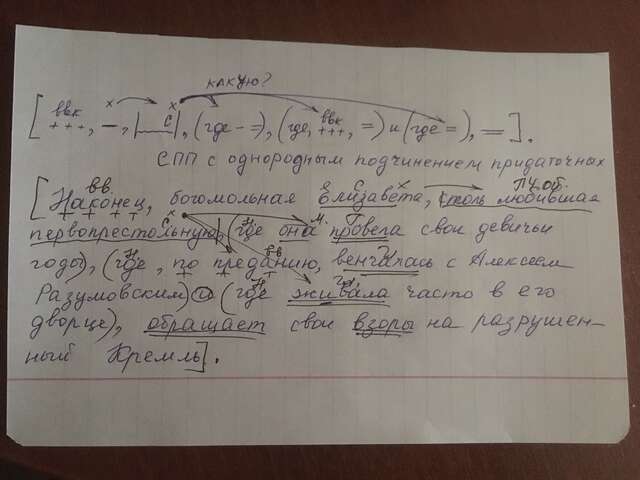 какую?
[ ввк +++, —, |С|, (где – =), (где, ввк +++, =) и (где =), = ].
СПП с однородным подчинением придаточных
[Наконец, богомольная Елизавета, столь любившая
первопрестольную, (где она провела свои девичьи
годы), (где, по преданию, венчалась с Алексеем
Разумовским) и (где живала часто в его
дворце), обращает свои взоры на разрушен-
ный Кремль].